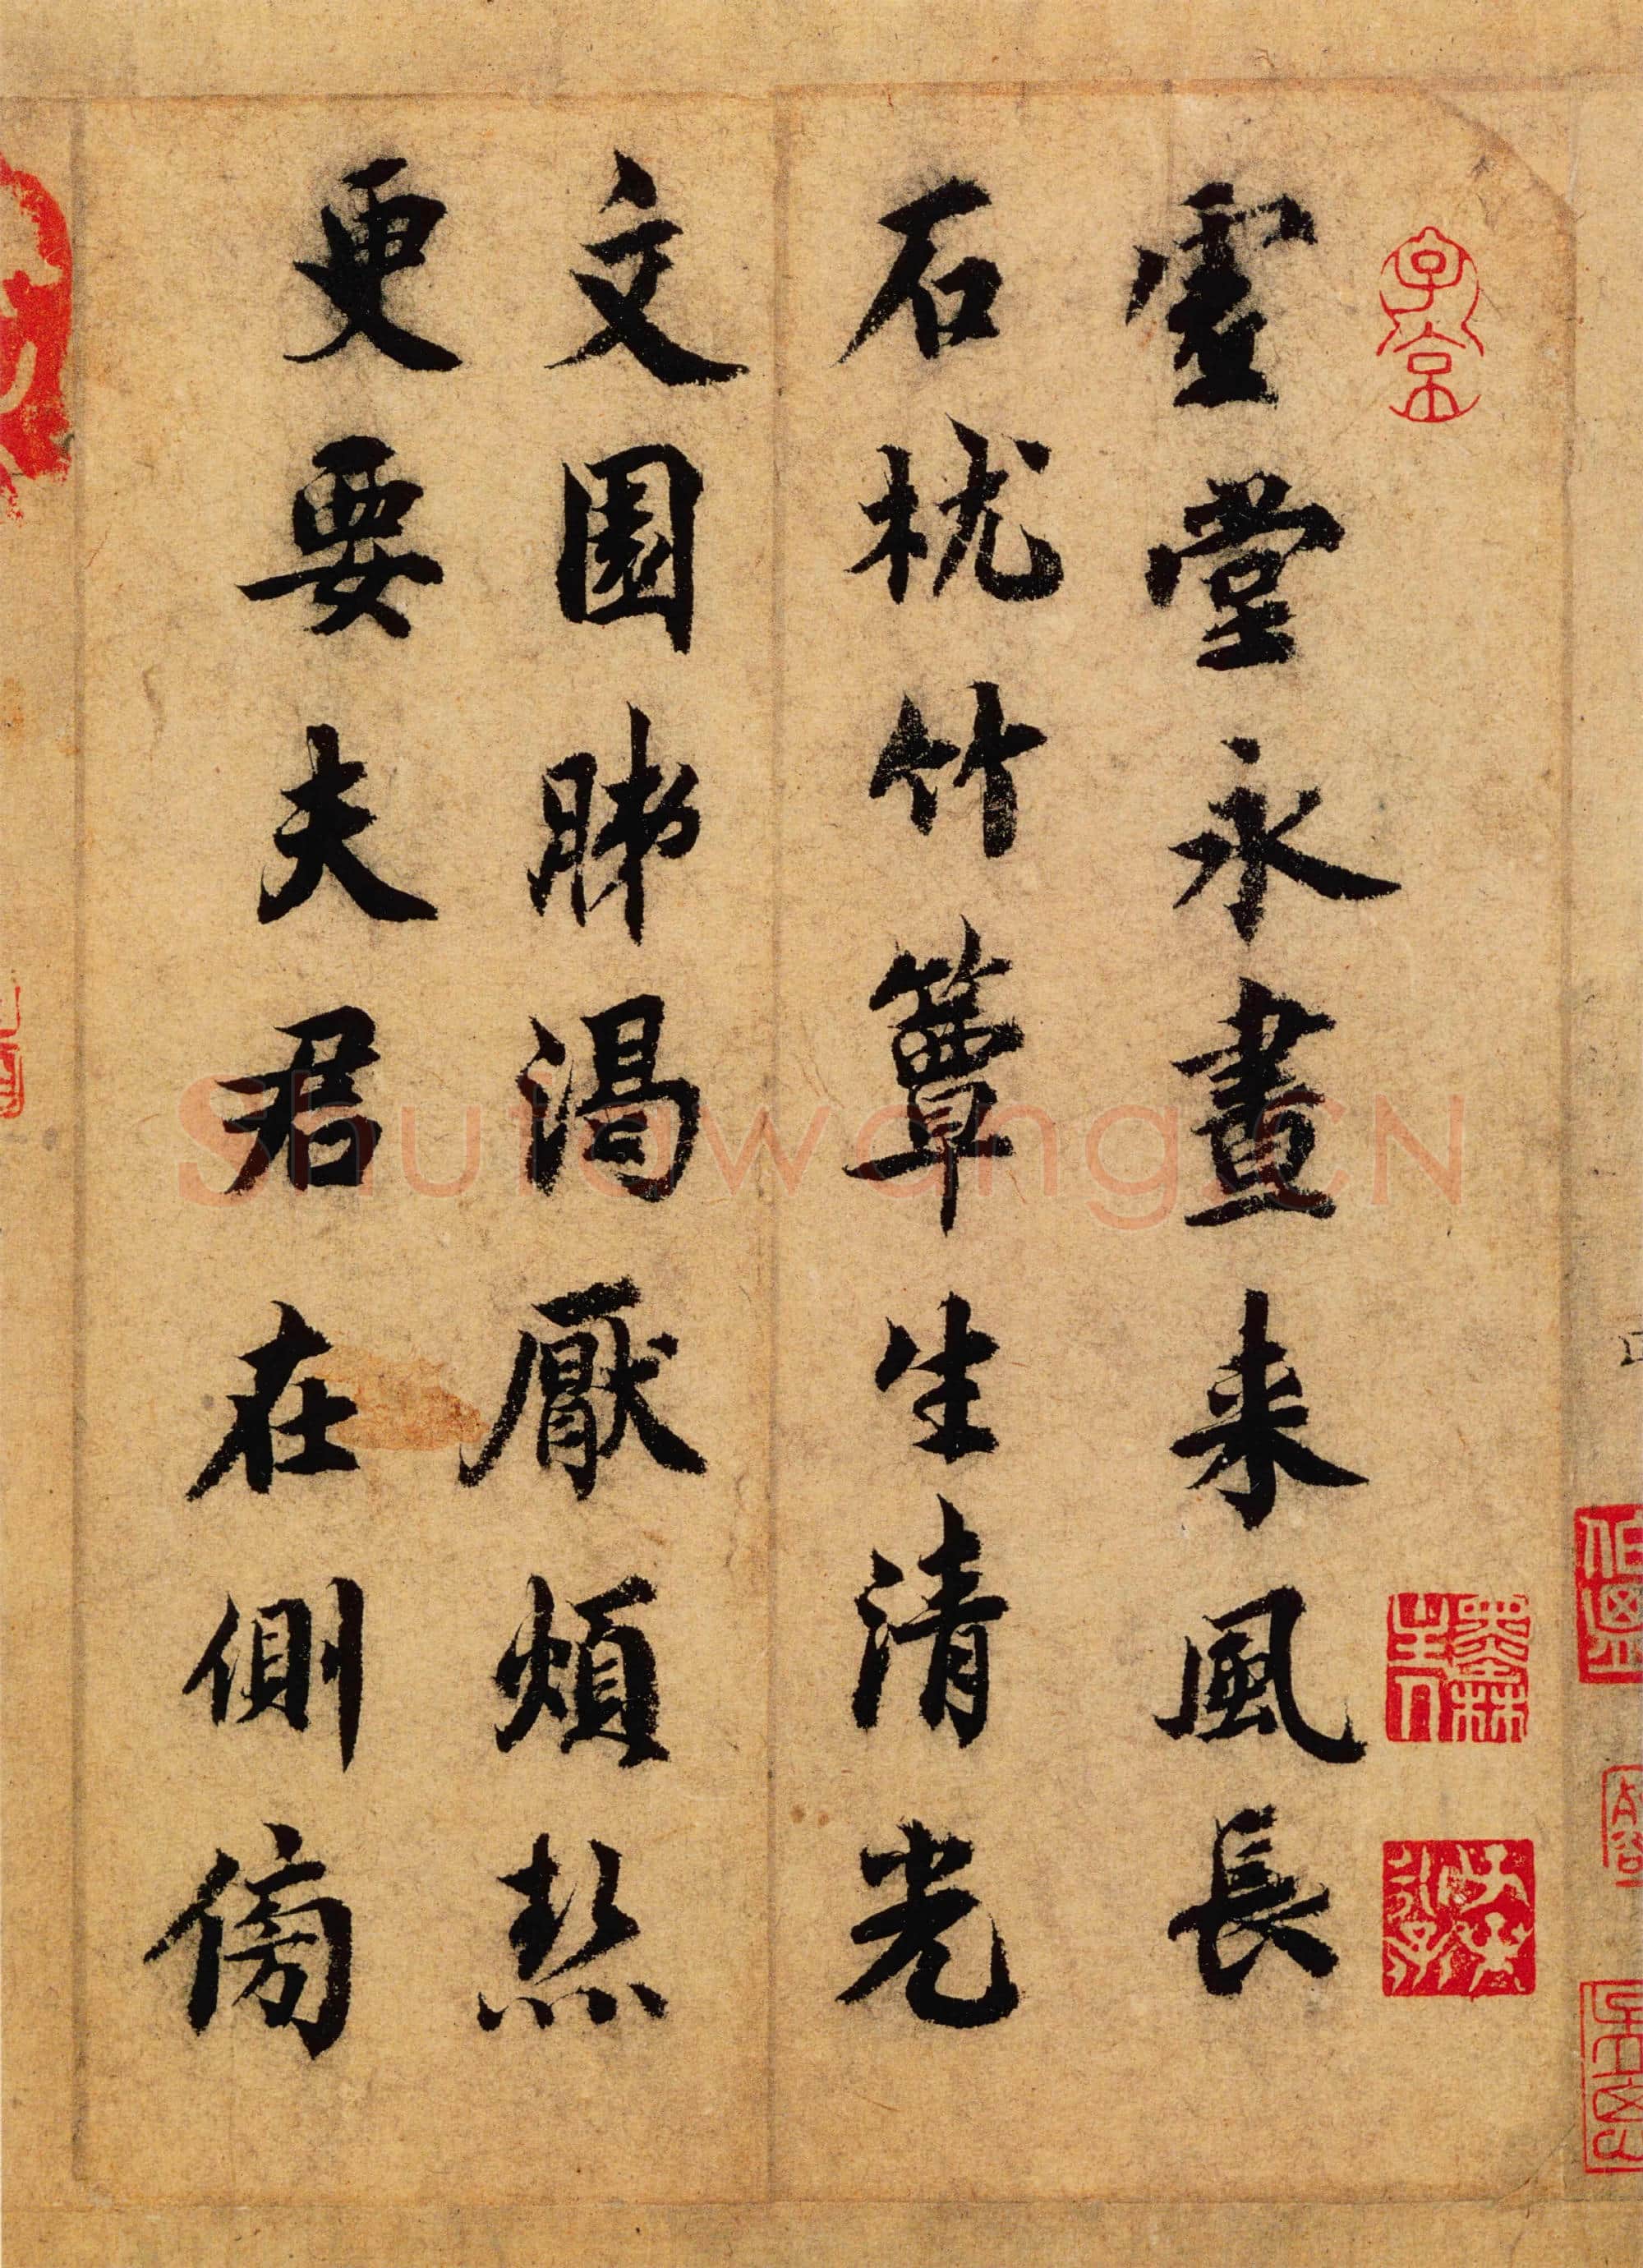 虛堂永晝来風長
石枕竹簟生清光
文園肺渴厭煩熱
更要夫君在側傍
Shufawang.CN